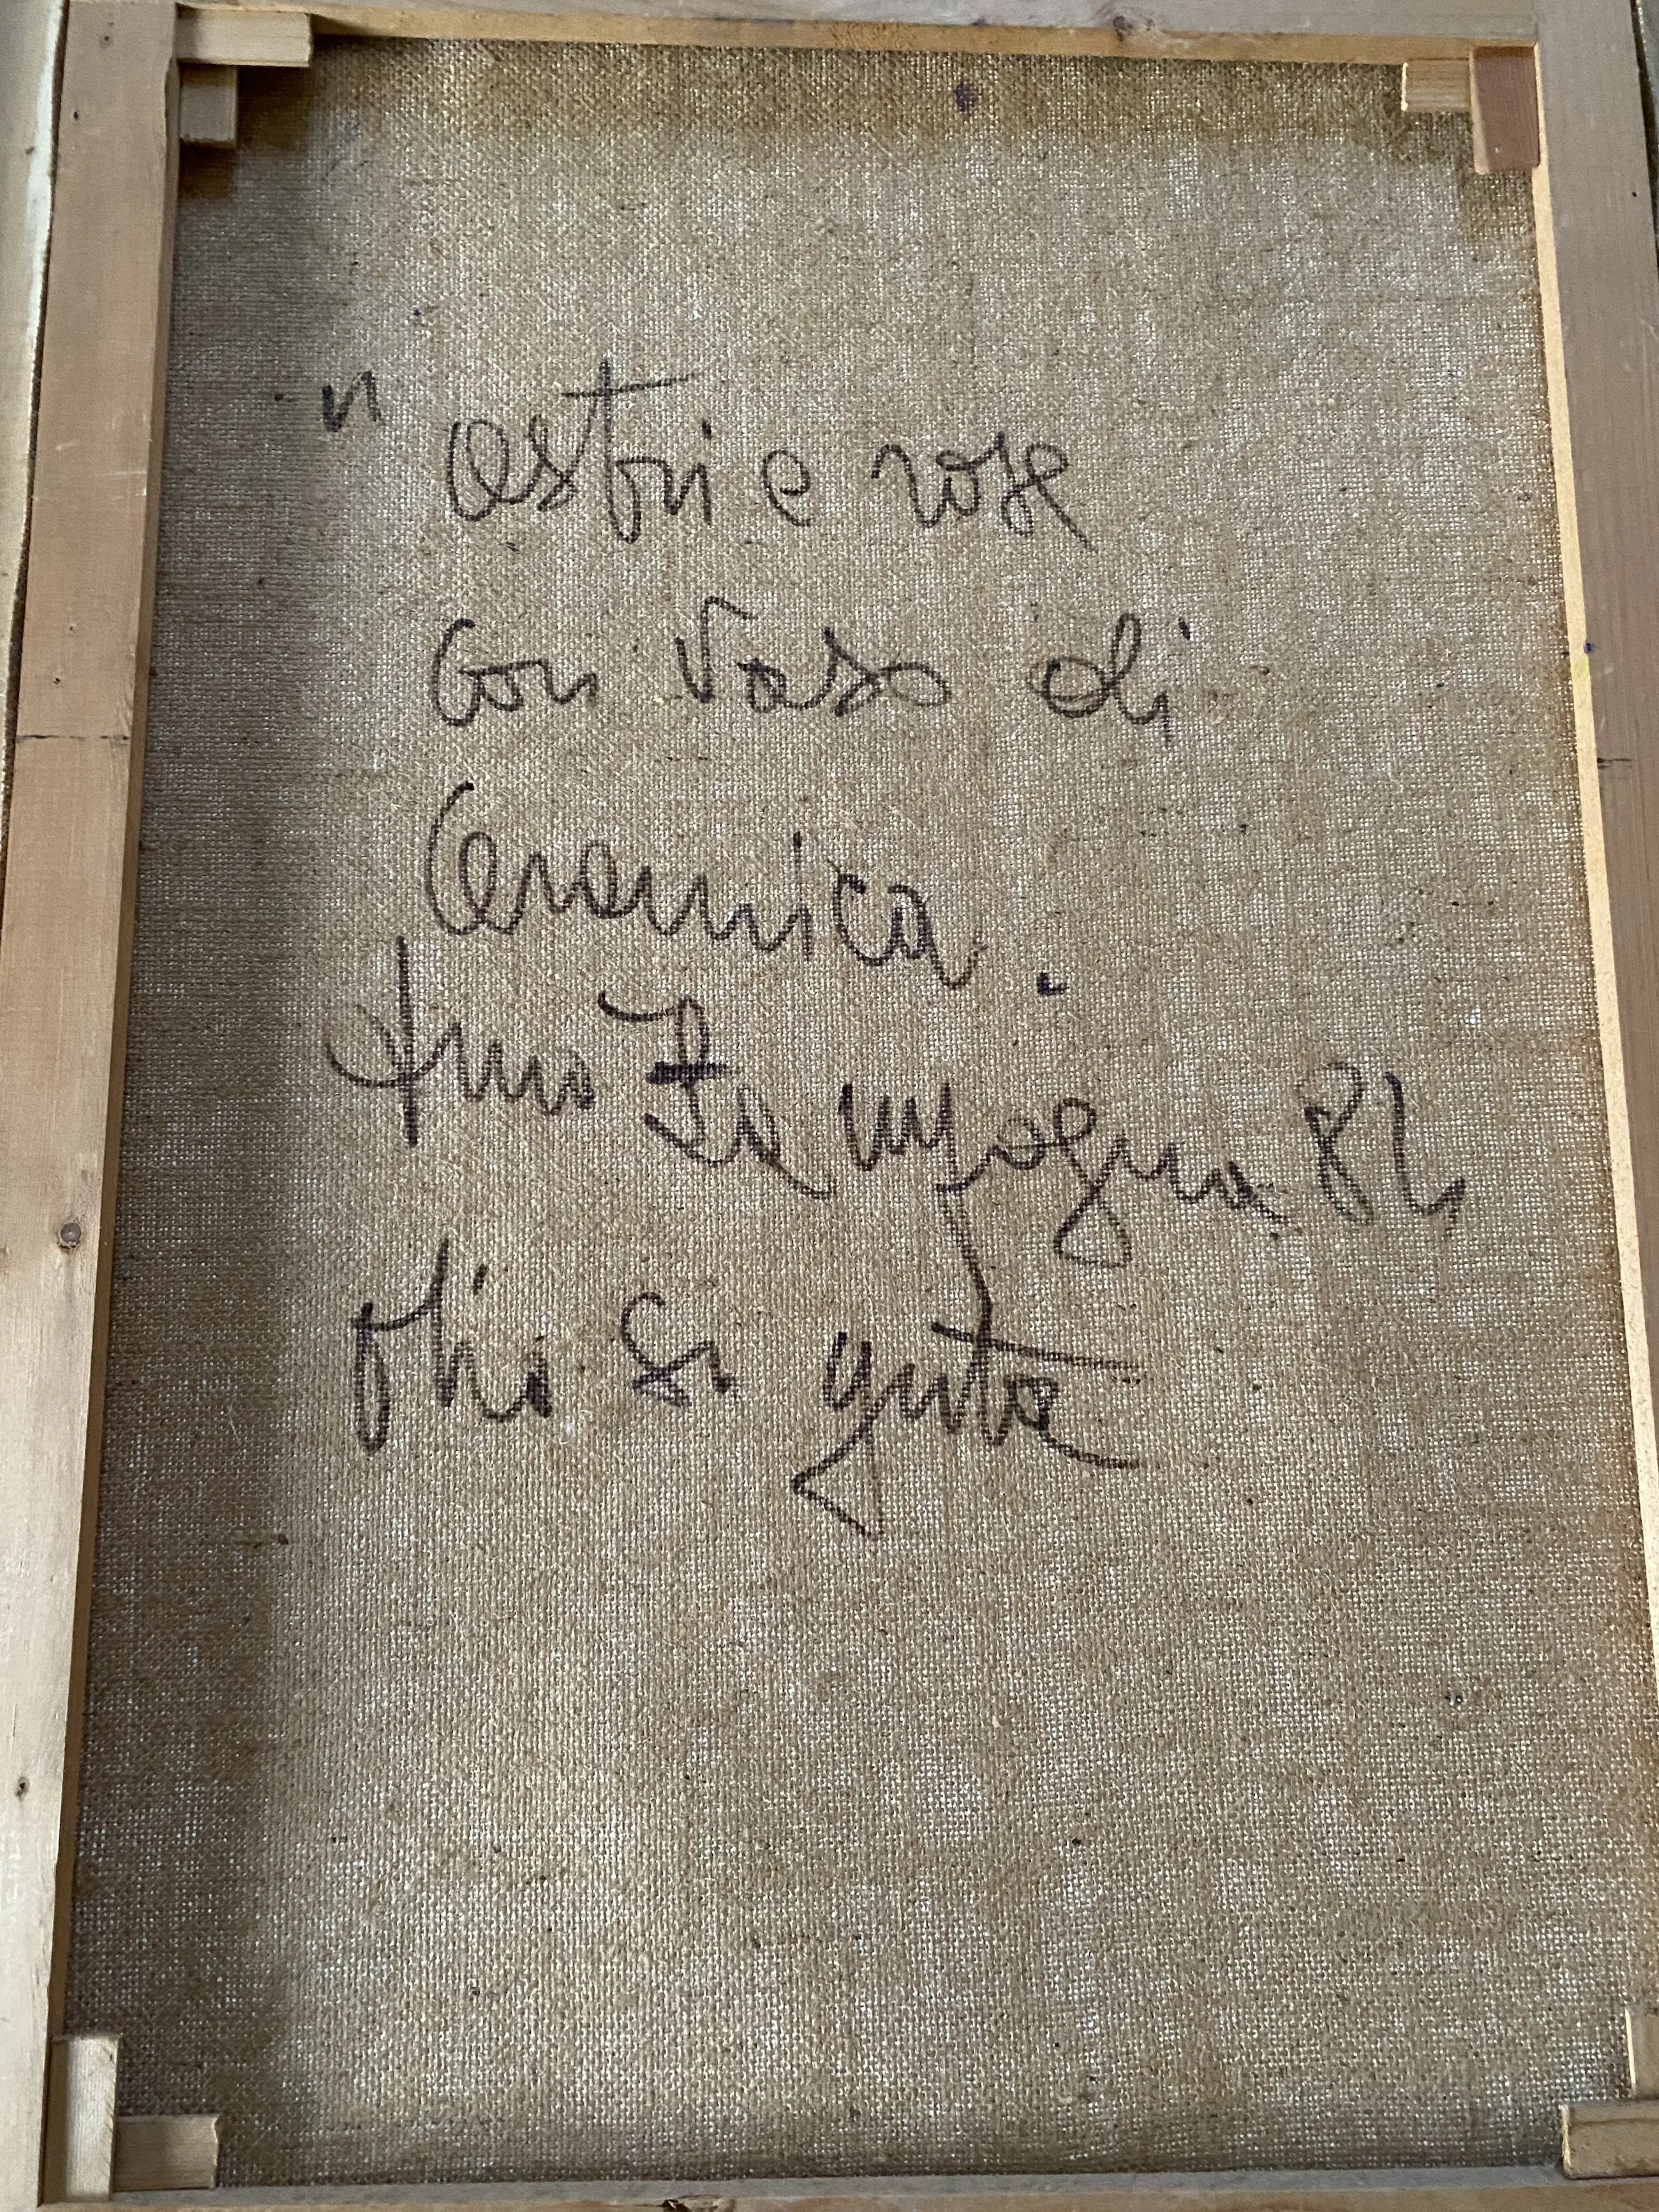 " astri e rose
con vaso di
Ceramica.
Lampogna 84
olio su yuta